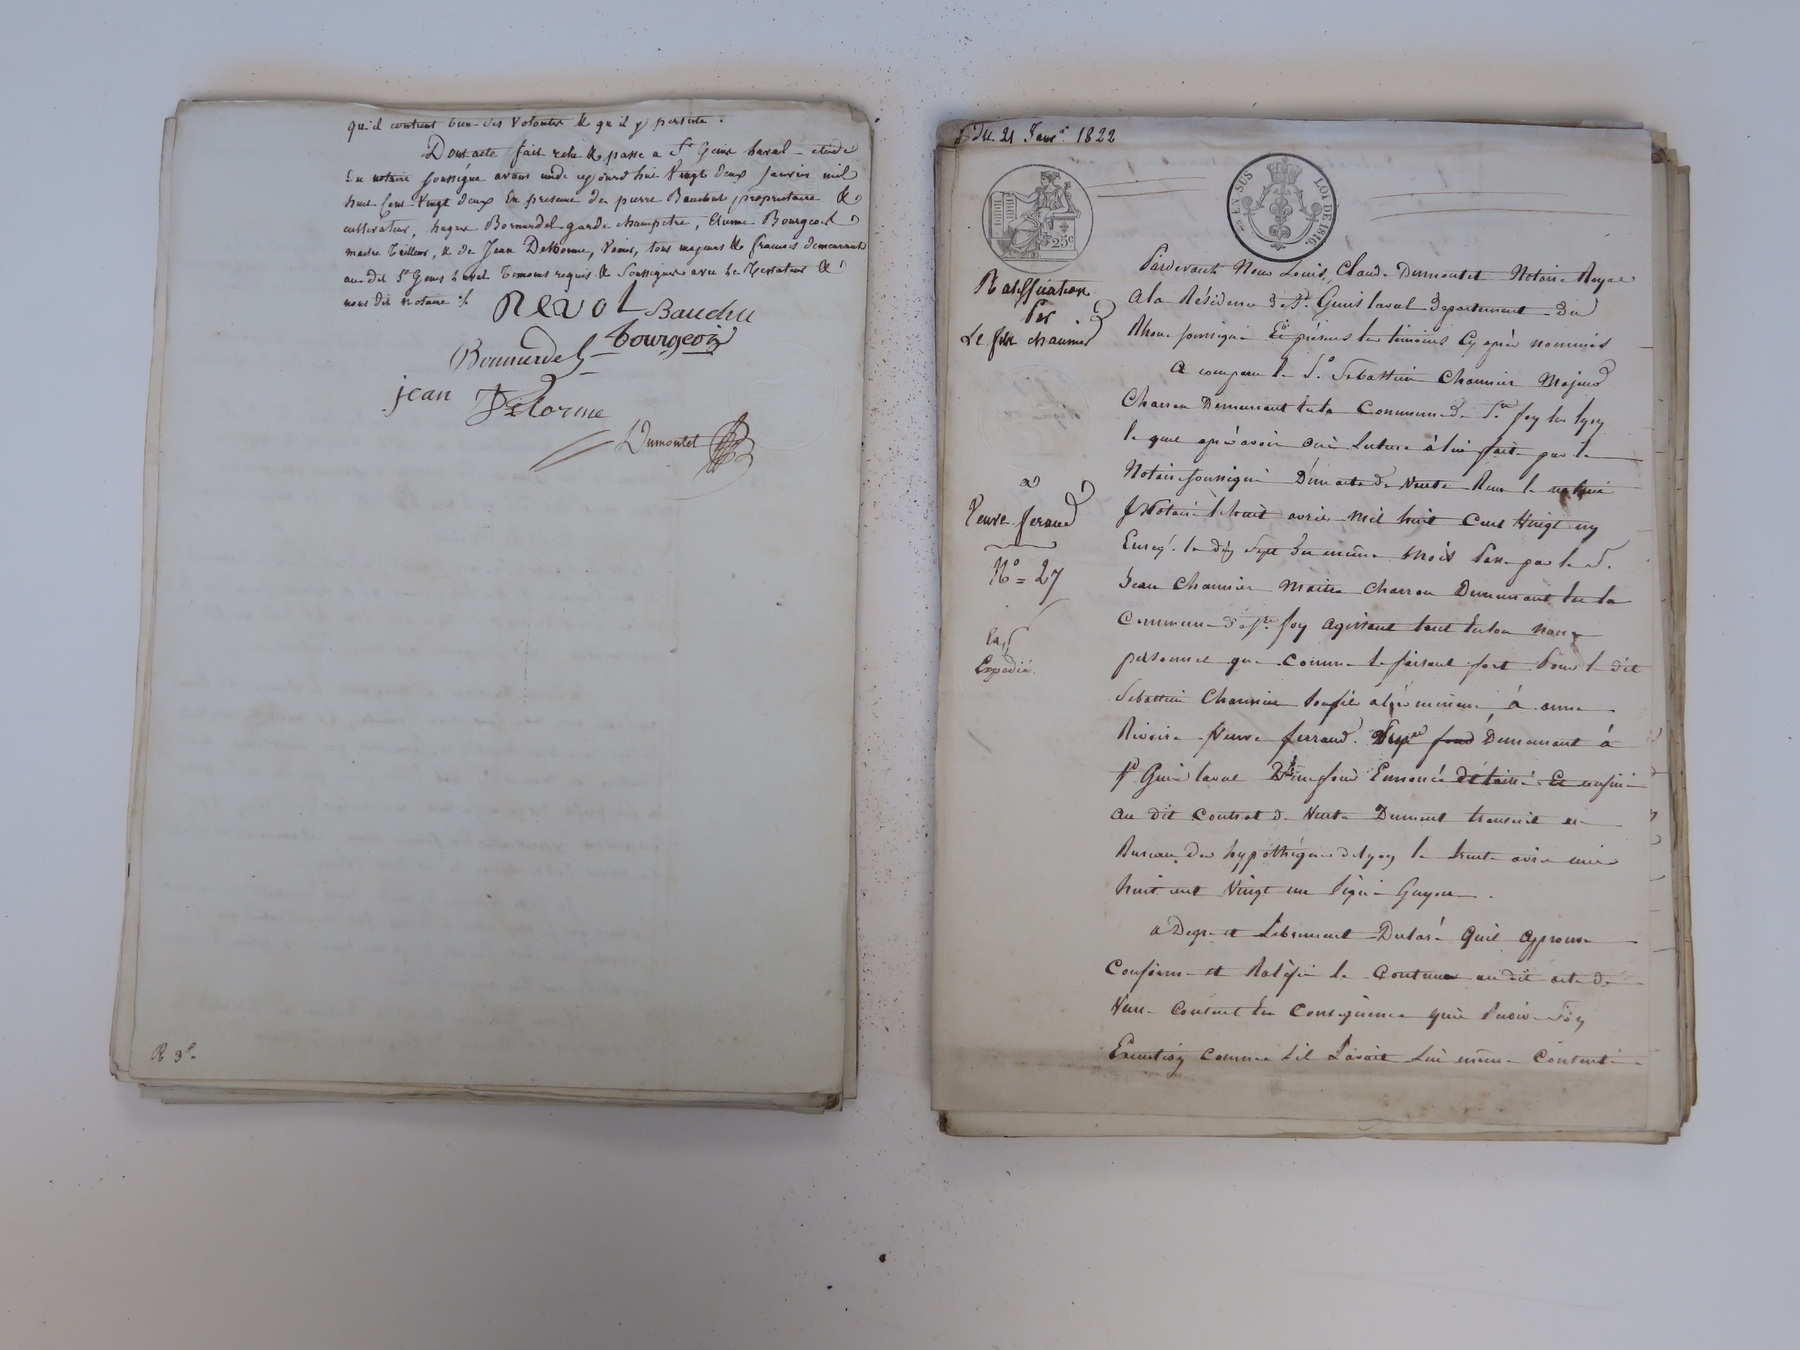 qu'il contient bien ses volontés & qu'il y persiste.
Dont acte fait relu & passé a St Genis Laval étude
du notaire soussigné avant midi cejourd'hui vingt deux janvier mil
huit cent vingt deux En presence de pierre Bauchu proprietaire &
cultivateur, hugue Bonnerdel garde champetre, Etienne Bourgeois
maitre tailleur, & de Jean Delorme, tous majeurs & francais demeurant
au dit St Genis Laval temoins requis & soussignés avec le Testateur &
nous dit notaire ./.
Revol Bauchu
Bonnerdel Bourgeois
jean Delorme
Dumontet
R 3f.
Du 21 Janvr 1822
25c
EN SUS
LOI DE 1816
Ratiffication
Per
Le fils chaumier
a
Veuve feraud
No = 27
Expedié.
Pardevant Nous Louis Claude Dumontet Notaire Royal
A la Résidence de St Genis laval Departement du
Rhone soussigné Et présens les témoins Cy après nommés
A comparu le Sr Sebastien Chaumier Majeur
Charron Demeurant en la Commune de Ste foy les lyon
le quel après avoir oui lecture à lui faite par le
Notaire soussigné D'un acte de Vente Reçu le
Notaire le huit avril Mil huit Cent Vingt un
Enregé. le dix sept du même Mois Passé par le S.
Jean Chaumier Maitre Charron Demeurant en la
Commune de Ste foy agissant tant en son nom
personnel que comme se faisant fort Pour le dit
Sebastien Chaumier son fils alors mineur à anne
Riviere Veuve ferraud. fond Demeurant à
St Genis laval D'un fond Enoncé détaillé Et confiné
au dit Contrat de Vente Dument transcrit au
Bureau des hypothéques de lyon le trente avril mil
huit cent Vingt un Signé Guyon.
a De gré et Librement Declaré Qu'il approuve
Confirme et Ratifie le Contenu au dit acte de
Vente Consent En Conséquence qu'il Puisse Son
Execution comme s'il L'avait Lui même Consenti